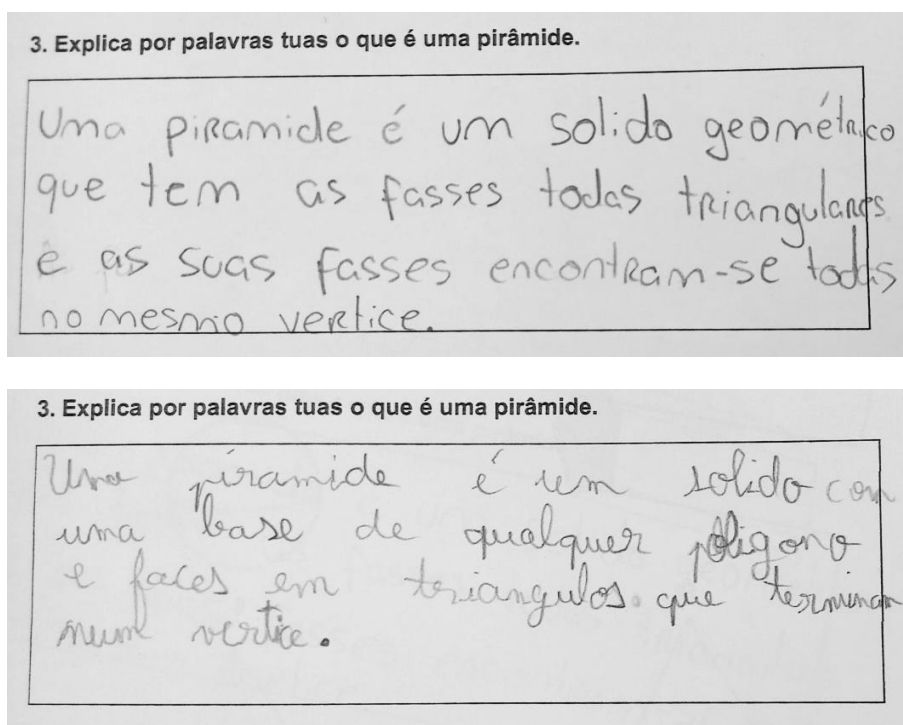 3. Explica por palavras tuas o que é uma pirâmide.
Uma piramide é um solido geométrico
que tem as fasses todas triangulares
e as suas fasses encontram-se todas
no mesmo vertice.
3. Explica por palavras tuas o que é uma pirâmide.
Uma piramide é um solido com
uma base de qualquer poligono
e faces em triangulos que terminam
num vertice.